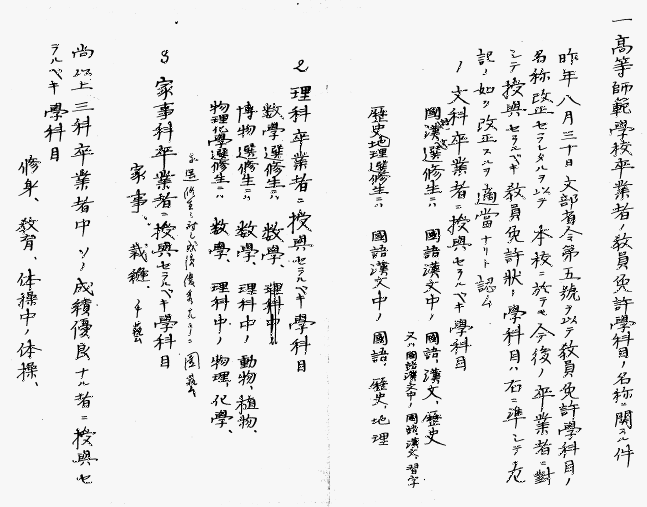 一高等師範學校卒業者ノ教員免許學科目ノ名称ニ関スル件
昨年八月三十日文部省令第五號ヲ以テ教員免許學科目ノ
名称改正セラレタルヲ以テ本校ニ於テモ今後ノ卒業者ニ對
シテ授與セラルベキ教員免許状ノ學科目ハ右ニ準シテ左
記ノ如ク改正スルヲ適當ナリト認ム
1 文科卒業者ニ授與セラルベキ學科目
國漢選修生ニハ 國語漢文中ノ 國語、漢文、歴史
又ハ國語漢文中ノ國語漢文、習字
歴史地理選修生ニハ 國語漢文中ノ 國語、歴史、地理
2 理科卒業者ニ授與セラルベキ學科目
数學選修生ニハ 数學、理科中ノ
博物選修生ニハ 数學、理科中ノ 動物、植物、
物理化學選修生ニハ 数學、理科中ノ 物理、化學、
選修生ニ對シ成績優秀ナル者ニ 園藝
3 家事科卒業者ニ授與セラルベキ學科目
家事、裁縫、手藝
尚以上三科卒業者中ソノ成績優良ナル者ニ授與セ
ラルベキ學科目
修身、教育、体操中ノ体操、